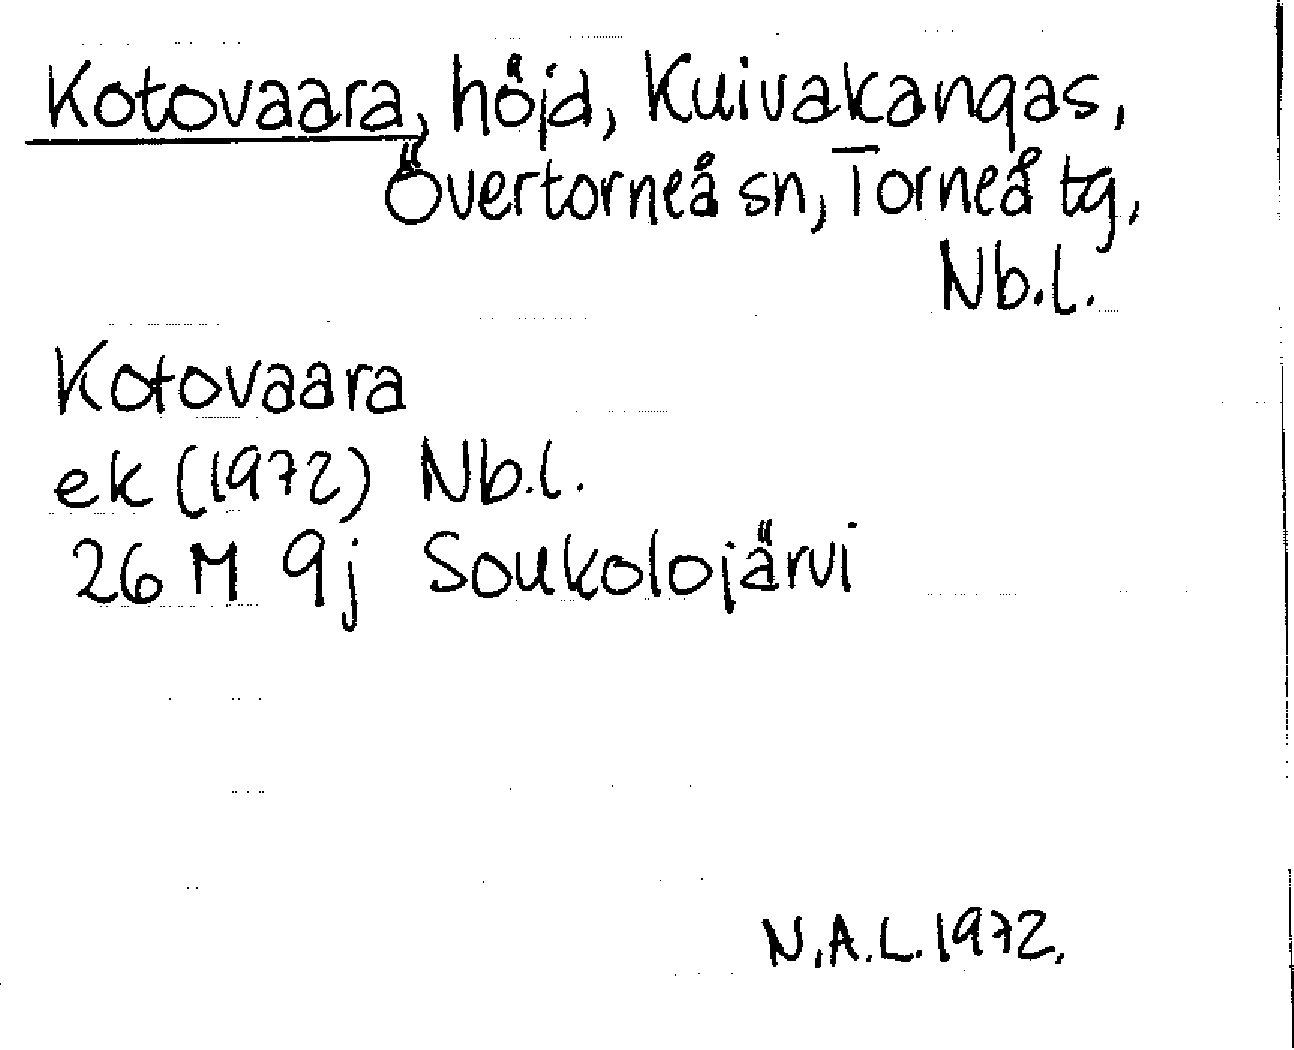 Kotovaara, höjd, Kuivakangas,
Övertorneå sn, Torneå tg,
Nb.l.
Kotovaara
ek (1972) Nb.l.
26 M 9j Soukolojärvi
N.A.L. 1972.